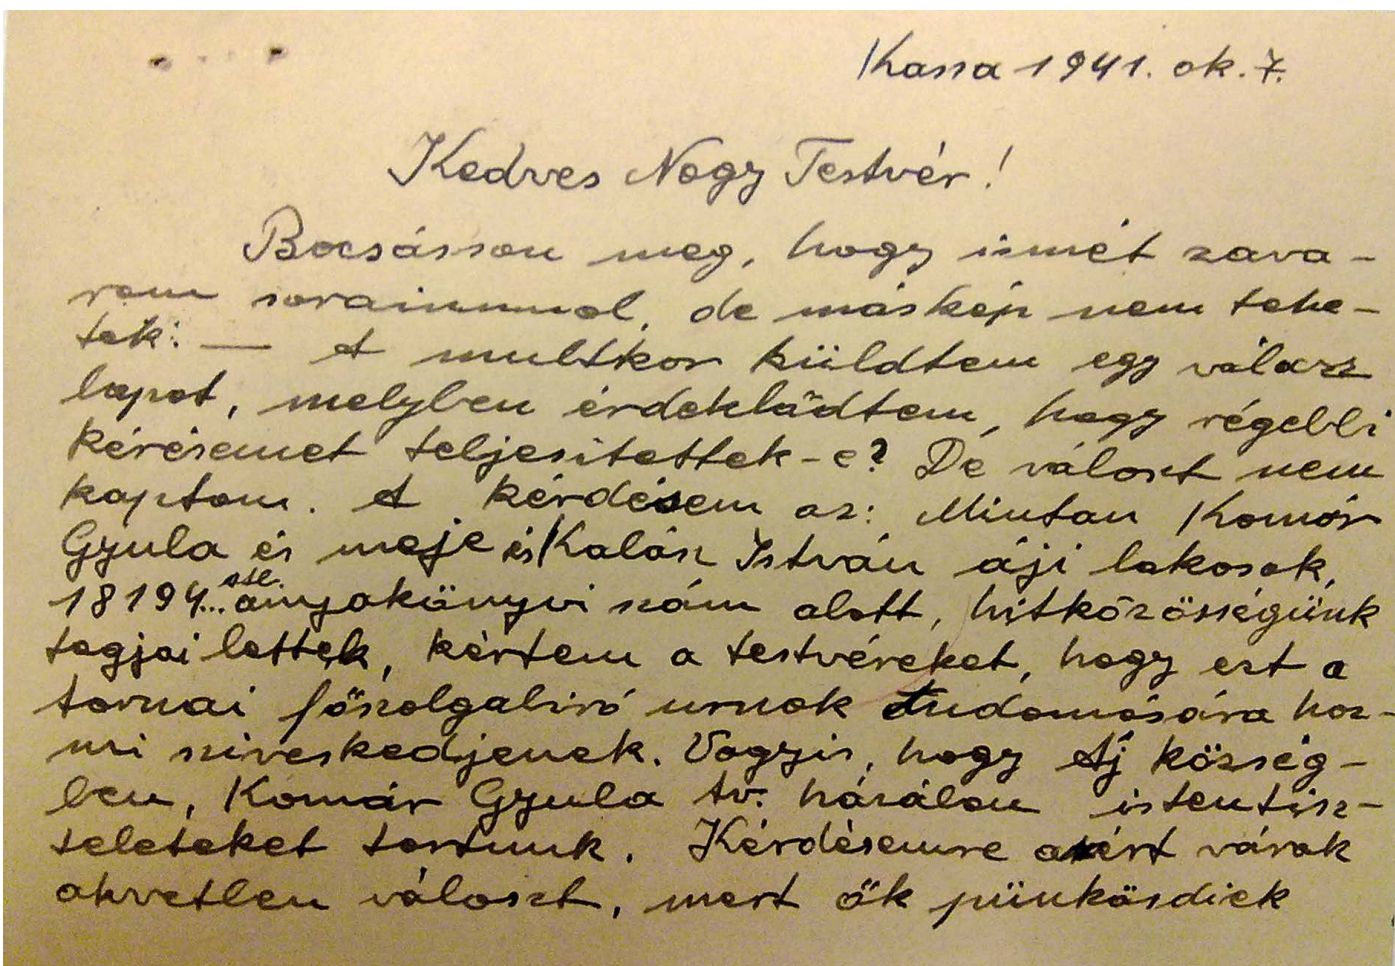 Kassa 1941. ok. 7.
Kedves Nagy Testvér!
Bocsásson meg, hogy ismét zava-
rom soraimmal, de máskép nem tehe-
tek: — A multkor küldtem egy válasz
lapot, melyben érdeklődtem, hogy régebbi
kérésemet teljesitettek-e? De választ nem
kaptam. A kérdésem az: Miutan Komár
Gyula és neje és Kalász István áji lakosok,
18194... stb. anyakönyvi szám alatt, hitközösségünk
tagjai lettek, kértem a testvéreket, hogy ezt a
tornai főszolgabiró urnok tudomására hoz-
ni sziveskedjenek. Vagyis, hogy Áj község-
ben, Komár Gyula tv. házálan istentisz-
teleteket tartunk. Kérdésemre azért várok
okvetlen választ, mert ők pünkösdiek